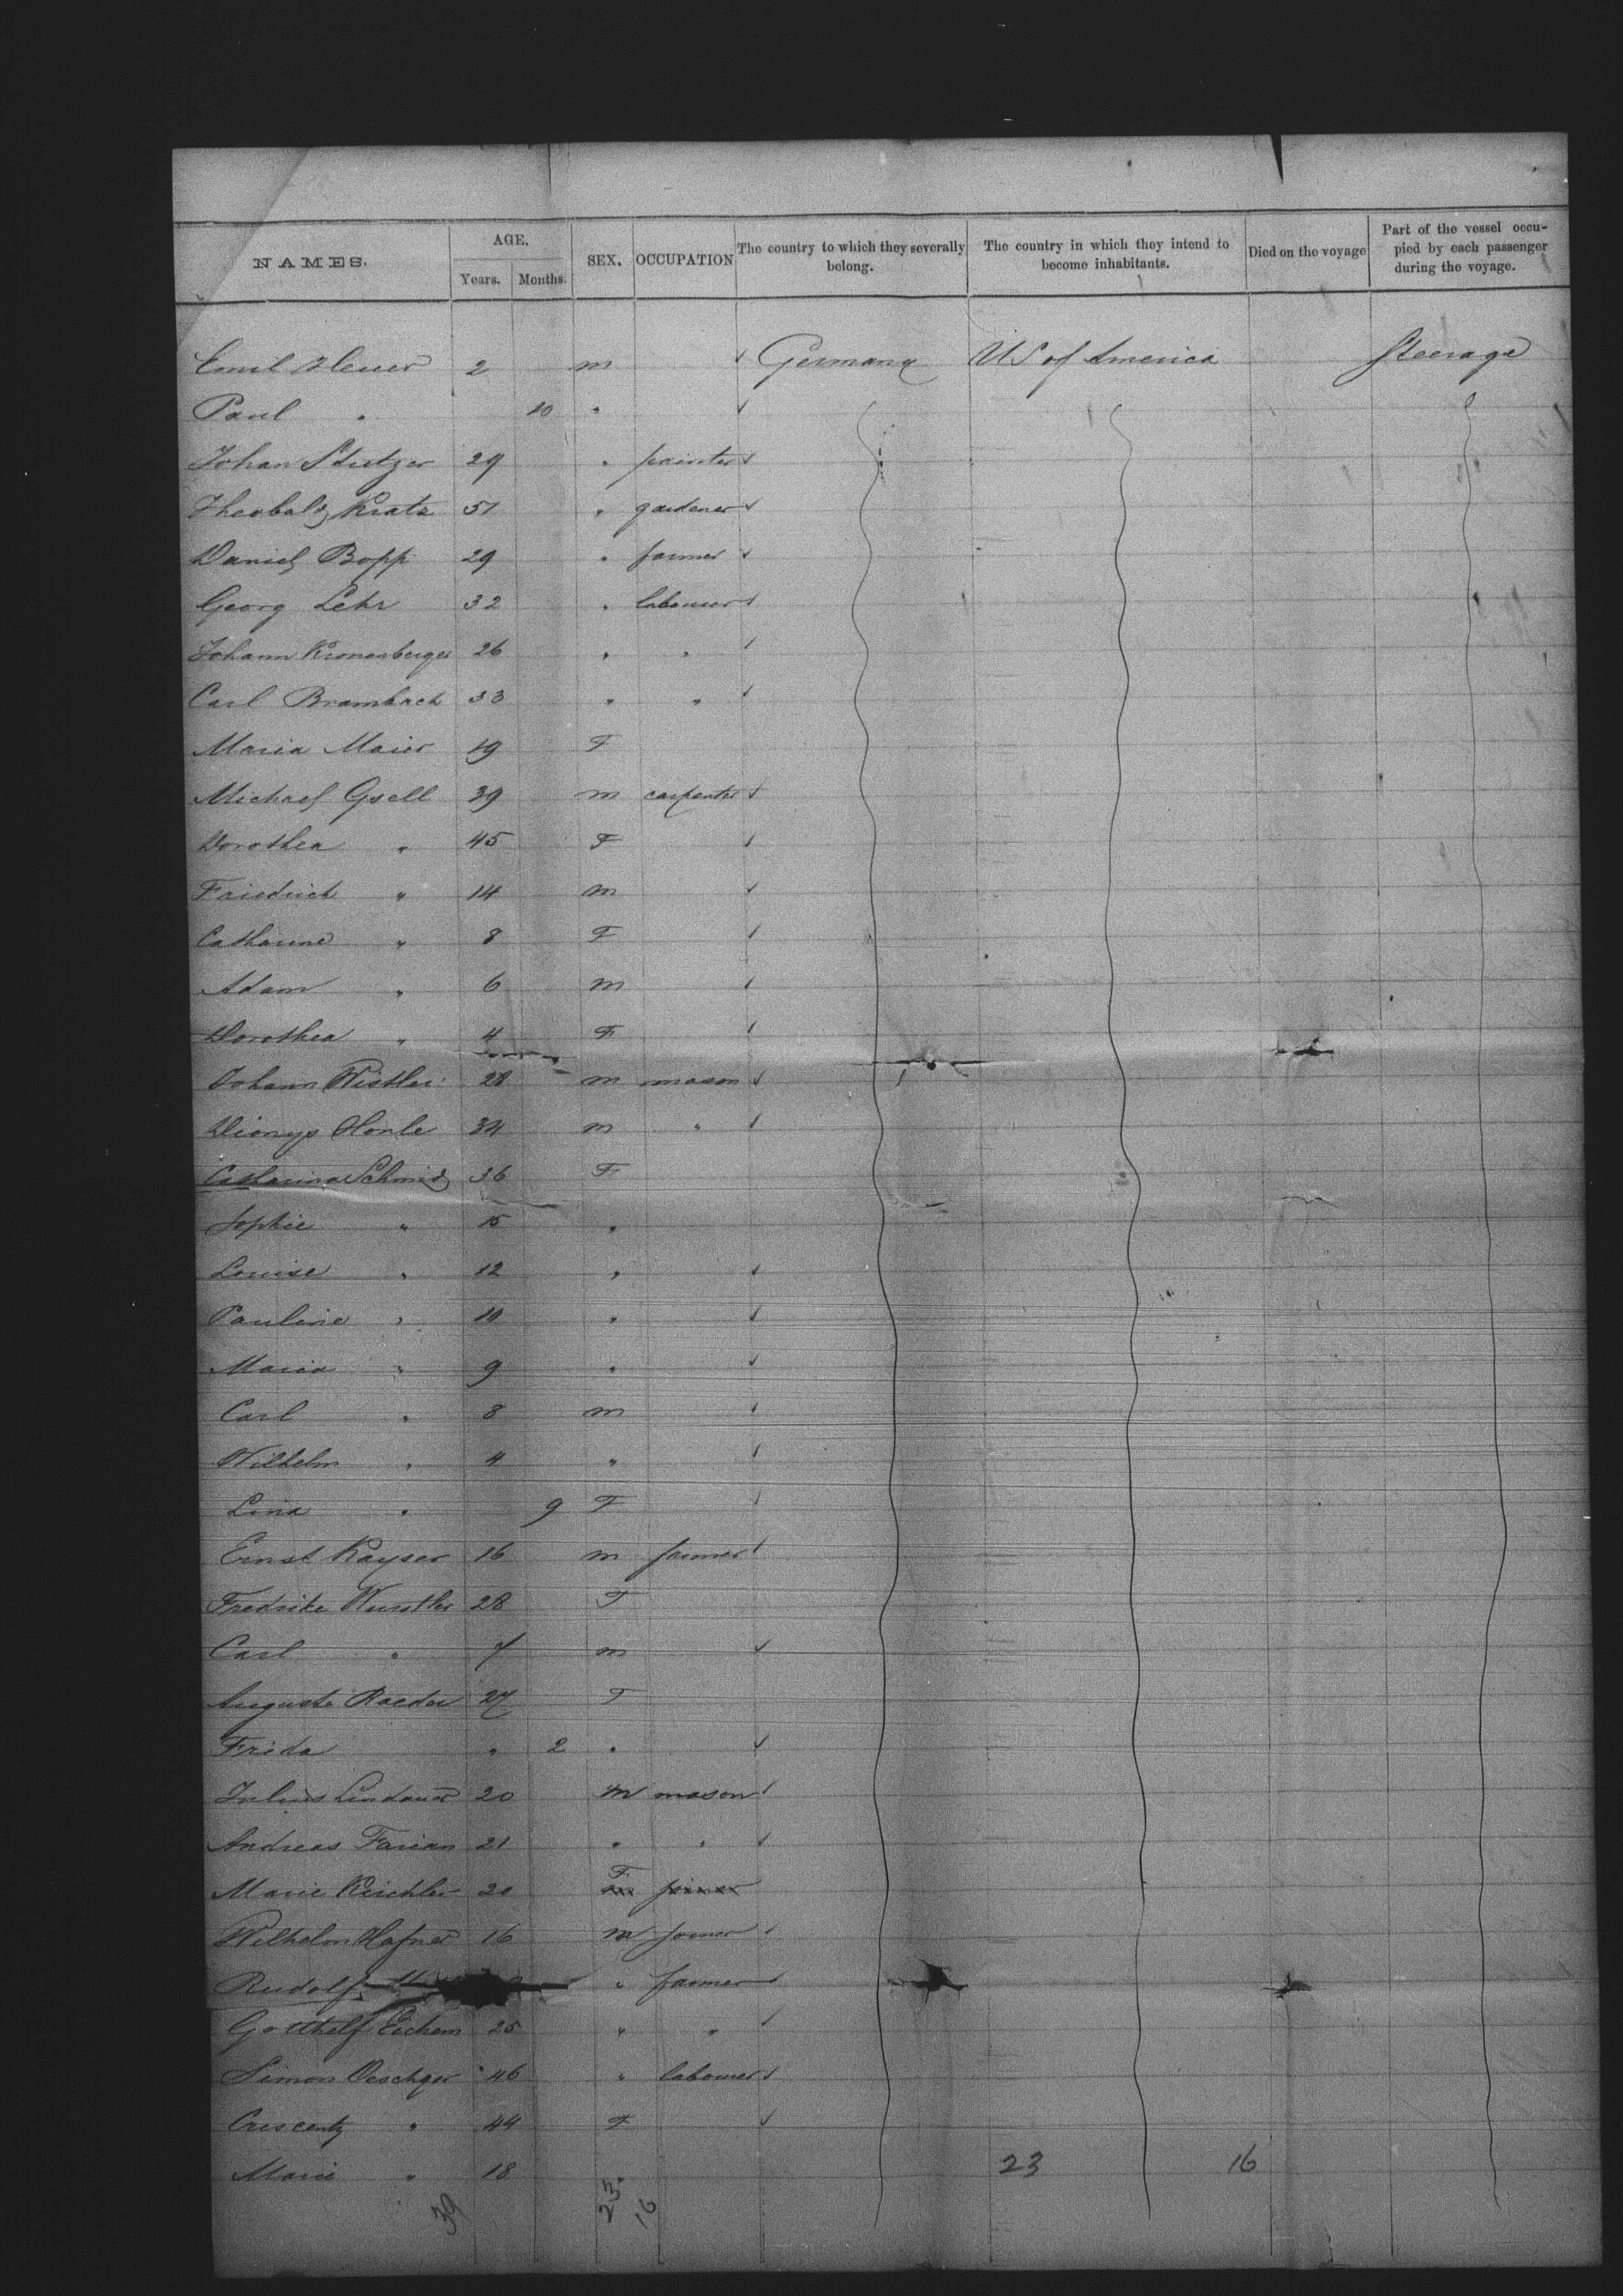 NAMES. AGE. Years. Months. SEX. OCCUPATION The country to which they severally belong. The country in which they intend to become inhabitants. Died on the voyage Part of the vessel occupied by each passenger during the voyage.
Emil Heuer 2 m Germany US of America Steerage
Paul " 10 "
Johan Stutzer 29 " painter
Theobald Kratz 51 " gardener
Daniel Bopp 29 " farmer
Georg Lehr 32 " labourer
Johann Kronenberger 26 " "
Carl Brambach 33 " "
Maria Maier 19 F
Michael Gsell 39 m carpenter
Dorothea " 45 F
Friedrich " 14 m
Catharine " 8 F
Adam " 6 m
Dorothea " 4 F
Johann Wistler 28 m mason
Dionys Honle 34 m "
Catharina Schmid 36 F
Sophie " 15 "
Louise " 12 "
Pauline " 10 "
Maria " 9 "
Carl " 8 m
Wilhelm " 4 "
Lina " 9 F
Ernst Kayser 16 m farmer
Fredrike Wurstler 28 F
Carl " 7 m
Auguste Raeder 27 F
Frida " 2 "
Julius Lindauer 20 m mason
Andreas Farian 21 " "
Marie Kerchler 20 F m joiner
Wilhelm Hafner 16 m joiner
Rudolf " farmer
Gotthelf Eichem 25 " "
Simon Oeschger 46 " labourer
Crescentz " 44 F
Marie " 18 " 23 16
39 23 16